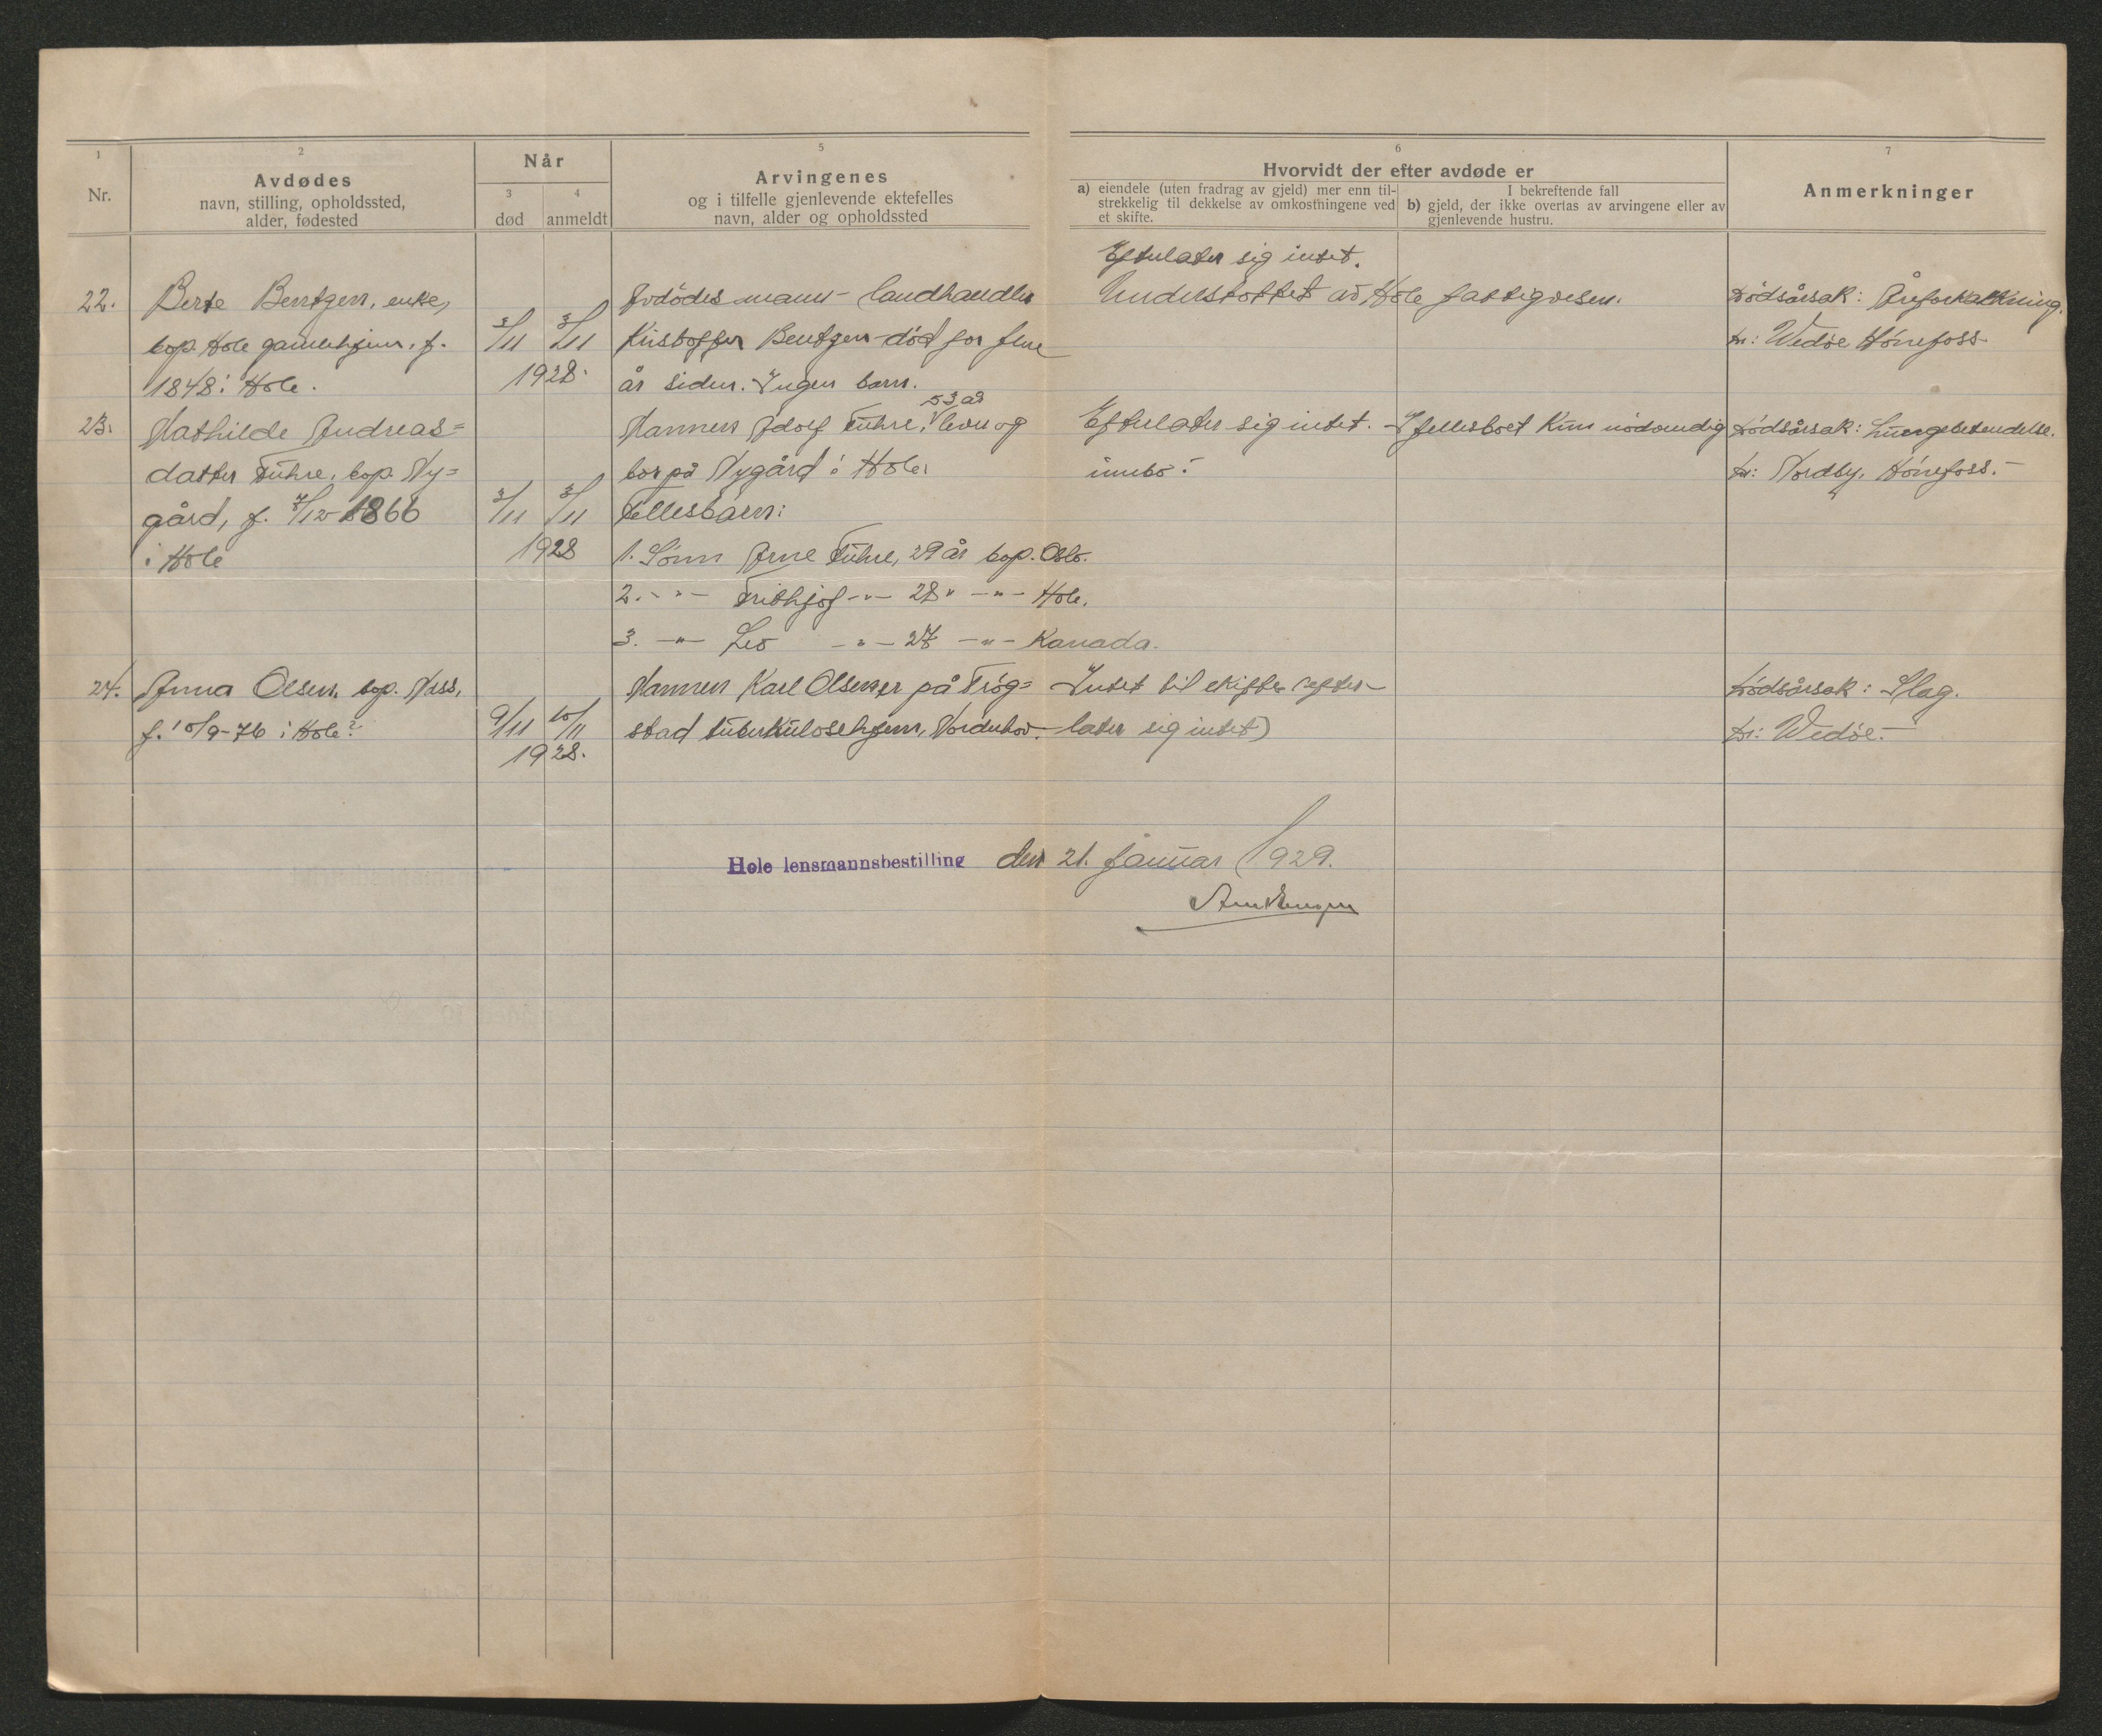 1
Nr.
2
Avdødes
navn, stilling, opholdssted,
alder, fødested
Når
3
død
4
anmeldt
5
Arvingenes
og i tilfelle gjenlevende ektefelles
navn, alder og opholdssted
6
Hvorvidt der efter avdøde er
a) eiendele (uten fradrag av gjeld) mer enn til-
strekkelig til dekkelse av omkostningene ved
et skifte.
I bekreftende fall
b) gjeld, der ikke overtas av arvingene eller av
gjenlevende hustru.
7
Anmerkninger
22.
Berte Berntzen, enke,
bop. Hole gamlehjem, f.
1848 i Hole.
3/11
3/11
1928.
Avdødes mann - landhandler
Kristoffer Bentzen død for flere
år siden. Ingen barn.
Efterlater sig intet.
Understøttet av Hole fattigvesen.
Dødsårsak: Åreforkalkning.
Dr: Wedøe Hønefoss.
23.
Mathilde Andreas=
datter Fuhre, bop. Ny=
gård, f. 7/12 1866
i Hole
3/11
3/11
1928
53 år
Mannen Adolf Fuhre, lever og
bor på Nygård i Hole.
Fellesbarn:
1. Sønn Arne Fuhre, 29 år bop. Oslo.
2. -"- Frithjof -"- 28 " -"- Hole.
3. -"- Leo -"- 27 -"- Kanada.
Efterlater sig intet. I fellesboet kun nødvendig
innbo.-
Dødsårsak: Lungebetendelse.
Dr: Nordby, Hønefoss.-
24.
Anna Olsen, bop. Moss,
f. 10/9-76 i Hole?
9/11
10/11
1928.
Mannen Karl Olsen er på Trøg=
stad tuberkulosehjem, Norderhov.
Intet til skifte (efter-
later sig intet)
Dødsårsak: Slag.
Dr: Wedøe.-
Hole lensmannsbestilling den 21. januar 1929.